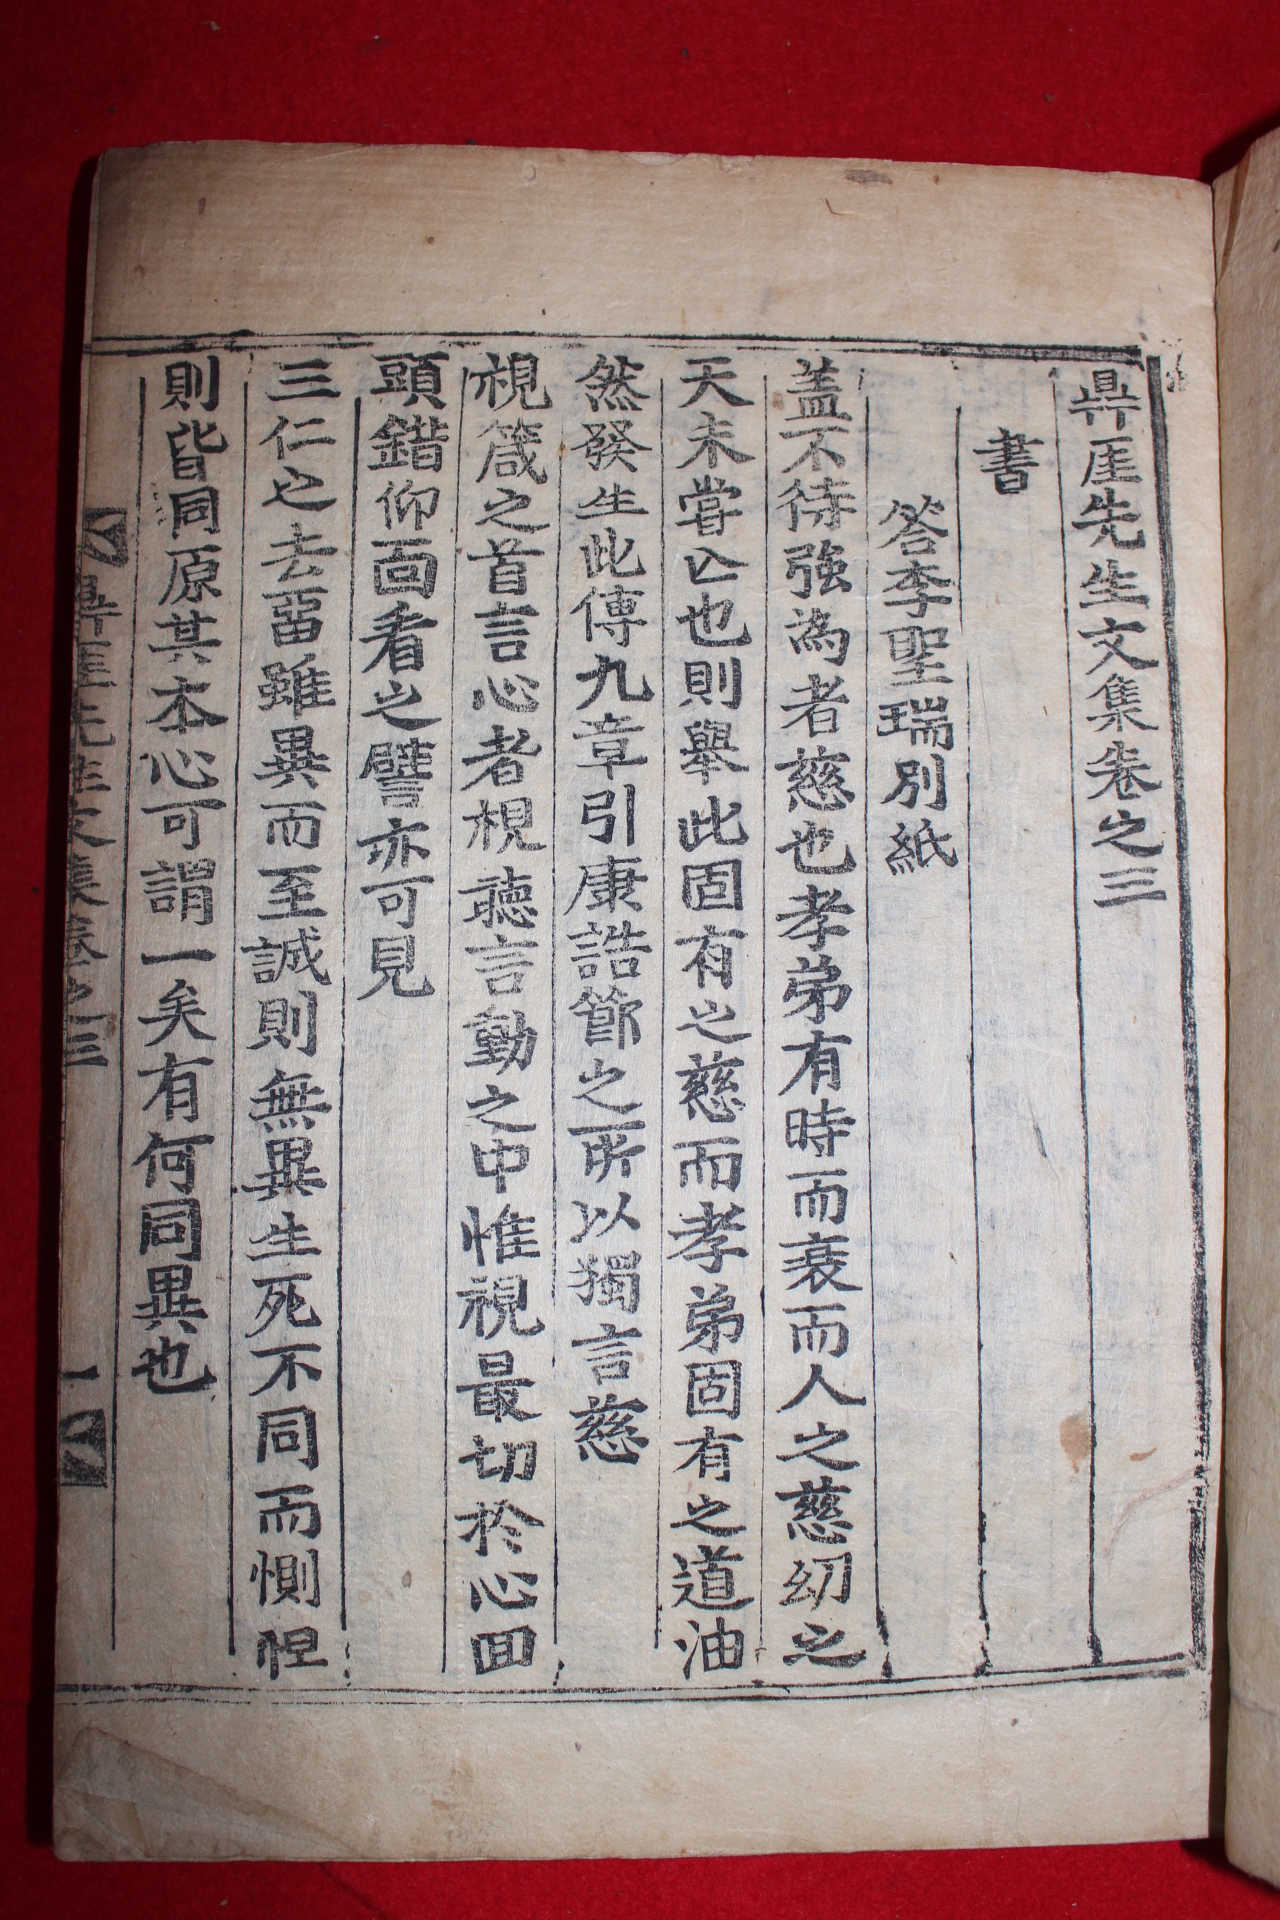 鼎厓先生文集卷之三
書
答李聖瑞別紙
盖不待強為者慈也孝弟有時而衰而人之慈幼之
天未嘗亾也則舉此固有之慈而孝弟固有之道油
然發生此傳九章引康誥節之所以獨言慈
視箴之首言心者視聽言動之中惟視最切於心回
頭錯仰面看之譬亦可見
三仁也去畱雖異而至誠則無異生死不同而惻怛
則皆同原其本心可謂一矣有何同異也
鼎厓先生文集卷之三
一